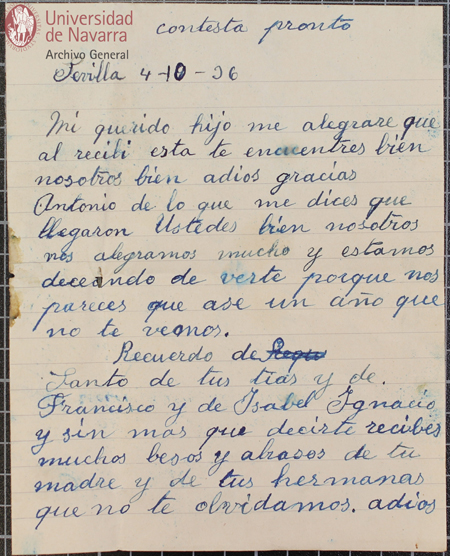 Universidad
de Navarra
Archivo General
contesta pronto
Sevilla 4-10-36
Mi querido hijo me alegrare que
al recibi esta te encuentres bien
nosotros bien adios gracias
Antonio de lo que me dices que
llegaron Ustedes bien nosotros
nos alegramos mucho y estamos
deceando de verte porque nos
pareces que ase un año que
no te vemos.
Recuerdo de
Santo de tus tias y de
Francisco y de Isabel Ignacio
y sin mas que decirte recibes
muchos besos y abrasos de tu
madre y de tus hermanas
que no te olvidamos. adios